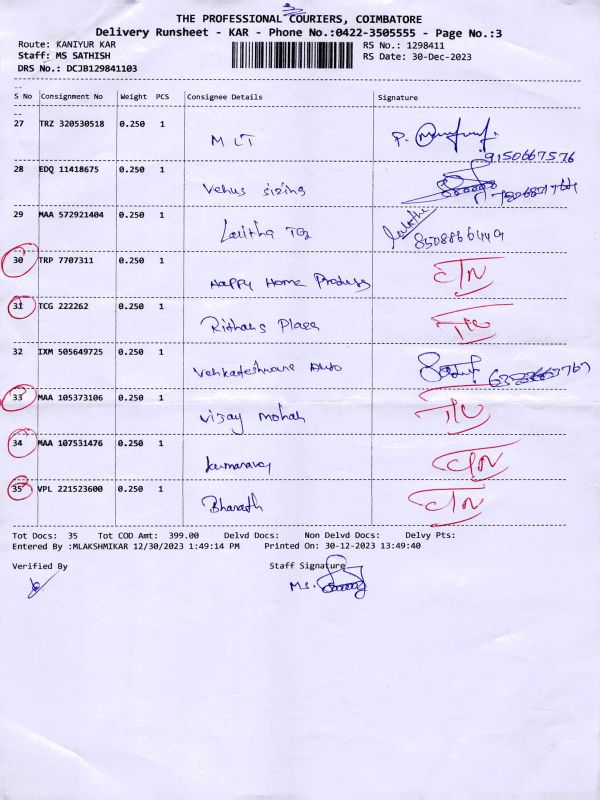 THE PROFESSIONAL COURIERS, COIMBATORE
Delivery Runsheet - KAR - Phone No.:0422-3505555 - Page No.:3
Route: KANIYUR KAR RS No.: 1298411
Staff: MS SATHISH RS Date: 30-Dec-2023
DRS No.: DCJB129841103
S No Consignment No Weight PCS Consignee Details Signature
27 TRZ 320530518 0.250 1 MLT P.
9150667576
28 EDQ 11418675 0.250 1 Venus sizing
29 MAA 572921404 0.250 1 Lalitha Lalitha
30 TRP 7707311 0.250 1 Happy Home Products
31 TCG 222262 0.250 1 Plaza
32 IXM 505649725 0.250 1 Venkateshwara Auto
33 MAA 105373106 0.250 1 Vijay Mohan
34 MAA 107531476 0.250 1 Kumaravel
35 VPL 221523600 0.250 1 Bharath
Tot Docs: 35 Tot COD Amt: 399.00 Delvd Docs: Non Delvd Docs: Delvy Pts:
Entered By :MLAKSHMIKAR 12/30/2023 1:49:14 PM Printed On: 30-12-2023 13:49:40
Verified By Staff Signature
MS.